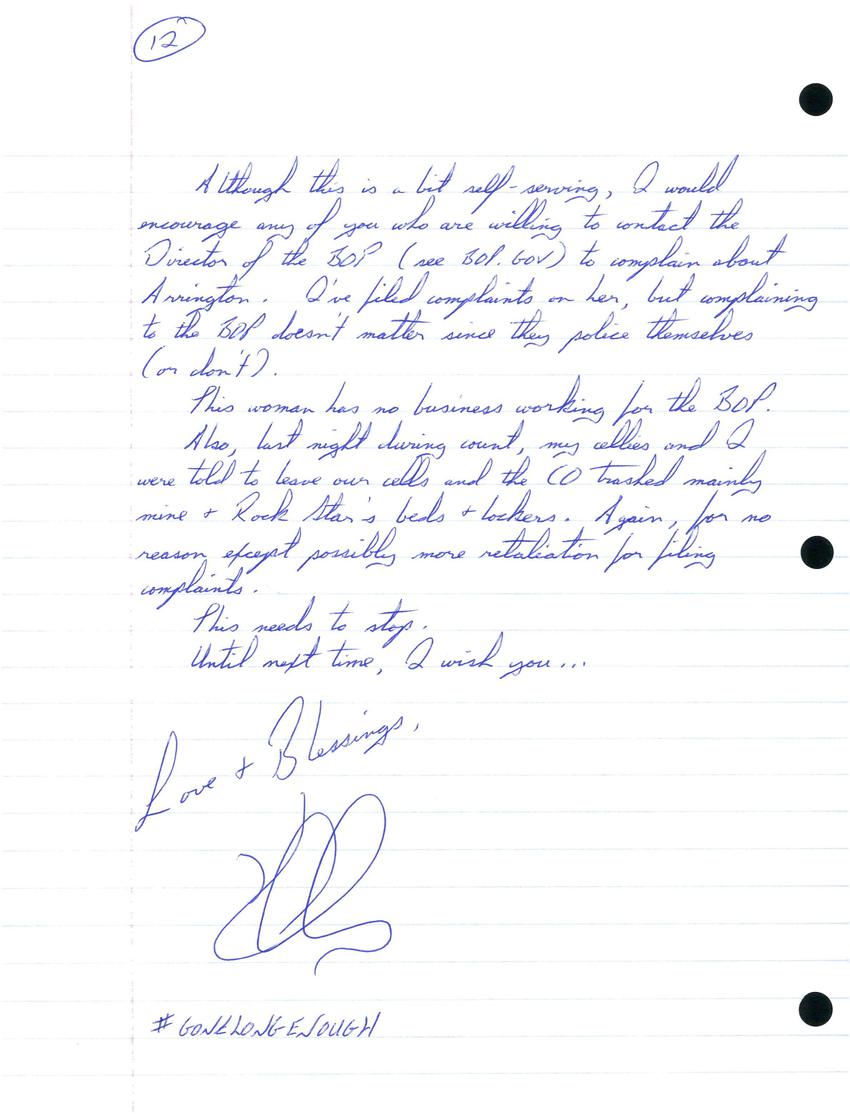 12
Although this is a bit self-serving, I would
encourage any of you who are willing to contact the
Director of the BOP (see BOP.GOV) to complain about
Arrington. I've filed complaints on her, but complaining
to the BOP doesn't matter since they police themselves
(or don't).
This woman has no business working for the BOP.
Also, last night during count, my cellies and I
were told to leave our cells and the CO trashed mainly
mine + Rock Star's beds + lockers. Again, for no
reason except possibly more retaliation for filing
complaints.
This needs to stop.
Until next time, I wish you...
Love + Blessings,
#GONELONGENOUGH